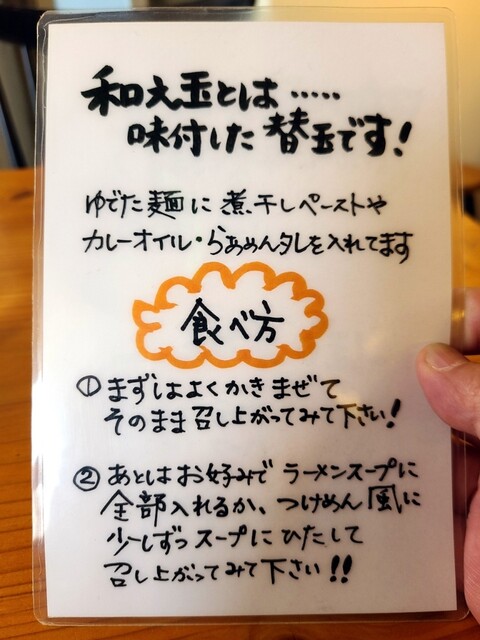 和え玉とは……
味付した替玉です!
ゆでた麺に煮干しペーストや
カレーオイル・らあめんタレを入れてます
食べ方
① まずはよくかきまぜて
そのまま召し上がってみて下さい!
② あとはお好みでラーメンスープに
全部入れるか、つけめん風に
少しずつスープにひたして
召し上がってみて下さい!!